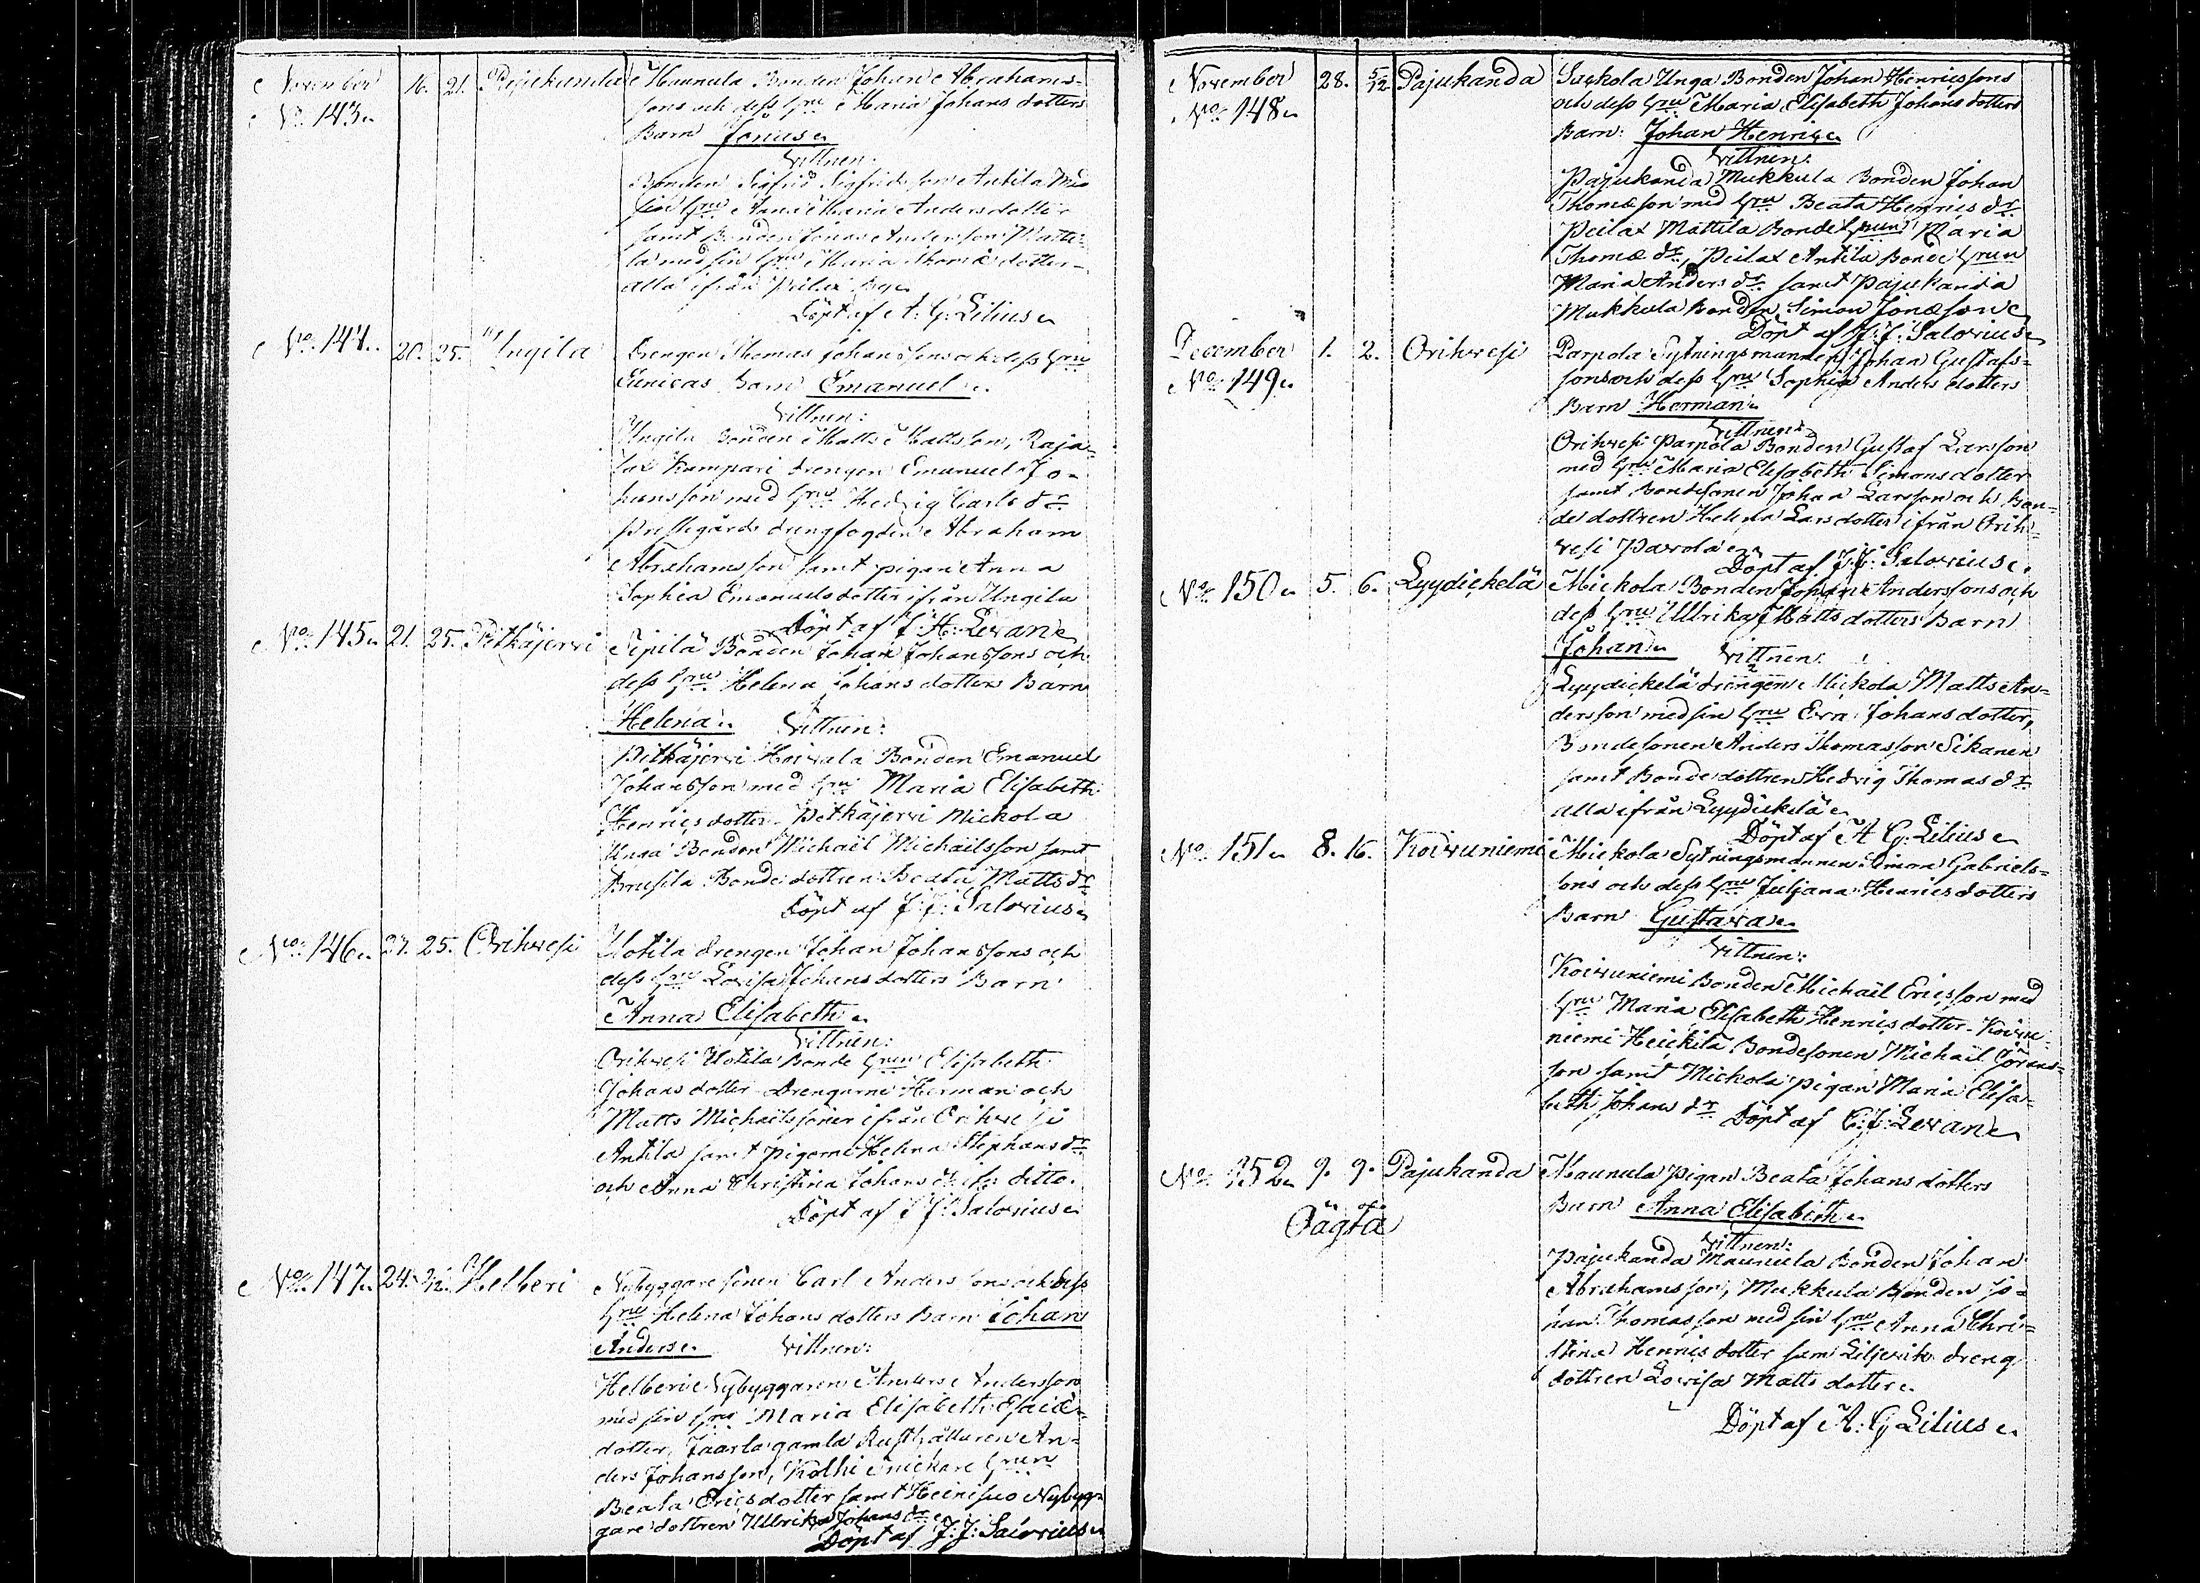 November 16. 21. Pajukanda Maunula Bonden Johan Abrahams-
No 143. sons och dess hru Maria Johans dotters
Barn Jonas
Vittnen:
Bonden Sigfrid Sigfridsson Antila med
sin hru Anna Maria Andersdotter
samt Bonden Jonas Andersson Matti-
la med sin hru Maria Thomæ dotter
alla ifrån Peilax By
Döpt af A. G. Lilius
No 144. 20. 25. Yngila Drengen Thomas Johanssons och dess hru
Eunicas Barn Emanuel
Vittnen:
Yngila Bonden Matts Mattsson, Raja-
Kampari drengen Emanuel Jo-
hansson med hru Hedvig Carls dr
Prestegårds drengfogden Abraham
Abrahamsson samt pigan Anna
Sophia Emanuelsdotter ifrån Yngila
Döpt af J: H: Levan
No 145. 21. 25. Pitkäjervi Sipilä Bonden Johan Johanssons och
dess hru Helena Johans dotters Barn
Helena Vittnen:
Pitkäjervi Hoivala Bonden Emanuel
Johansson med hru Maria Elisabeth
Henricsdotter Pitkäjervi Mickola
Unga Bonden Michaël Michaëlsson samt
Brusila Bonde dottren Beata Matts dr
Döpt af J: J: Salovius
No 146. 23. 25. Orihvesi Uotila drengen Johan Johanssons och
dess hru Lovisa Johans dotters Barn
Anna Elisabeth
Vittnen:
Orihvesi Uotila Bonde hrun Elisabeth
Johans dotter Drengarne Herman och
Matts Michaëlssöner ifrån Orihvesi
Antila samt pigorne Helena Stephans dr
och Anna Christina Johans dr ifr. ditto.
Döpt af J: J: Salovius
No 147. 24. 2/12. Helberi Nybyggare sonen Carl Anders sons och dess
hru Helena Johans dotters Barn Johan
Anders Vittnen:
Helberi Nybyggaren Anders Andersson
med sin hru Maria Elisabeth Esaiæ-
dotter, Jaarla gamla Rusthållaren An-
ders Johansson, Kolhi Snickare hrun
Beata Ericsdotter samt Heinisuo Nybyg-
gare dottren Ulrika Johans dr
Döpt af J: J: Salovius
November 28. 5/12 Pajukanda Unga Bonden Johan Henricssons
No 148. och dess hru Maria Elisabeth Johans dotters
Barn: Johan Henric
Vittnen:
Pajukanda Mukkula Bonden Johan
Thomæson med hru Beata Henrics dr
Peilax Mattila Bonde hrun Maria
Thomæ dr, Peilax Antila Bonde hrun
Maria Anders dr samt Pajukanda
Mukkula Bonden Simon Jonæson
Döpt af J: J: Salovius
December 1. 2. Orihvesi Parpola Sytningsmannen Johan Gustafs-
No 149. sons och dess hru Sophia Anders dotters
Barn Herman
Vittnen:
Orihvesi Parpola Bonden Gustaf Larsson
med hru Maria Elisabeth Simons dotter
samt Bondesonen Johan Larsson och Bon-
de dottren Helena Lars dotter ifrån Orih-
vesi Parola
Döpt af J: J: Salovius
No 150. 5. 6. Lyydickelä Mickola Bonden Johan Anderssons och
dess hru Ullrika Matts dotters Barn
Johan Vittnen:
Lyydickelä drengen Mickola Matts An-
dersson med sin hru Eva Johans dotter,
Bondesonen Anders Thomasson Sikanen
samt Bonde dottren Hedvig Thomas dr
alla ifrån Lyydickelä
Döpt af A. G: Lilius
No 151. 8. 16. Koivuniemi Mickola Sytningsmannen Simon Gabriels-
sons och dess hru Juljana Henrics dotters
Barn Gustava
Vittnen:
Koivuniemi Bonden Michaël Ericsson med
hru Maria Elisabeth Henrics dotter. Koivu-
niemi Heickilä Bondesonen Michaël Görans-
son samt Mickola pigan Maria Elisa-
beth Johans dr Döpt af C: J: Levan
No 152. 9. 9. Pajukanda Maunula Pigan Beata Johans dotters
Oägta Barn Anna Elisabeth
Vittnen:
Pajukanda Maunula Bonden Johan
Abrahamsson, Mukkula Bonden Jo-
han Thomasson med sin hru Anna Chri-
stina Henrics dotter samt Liljevik dreng
dottren Lovisa Matts dotter
Döpt af A: G Lilius